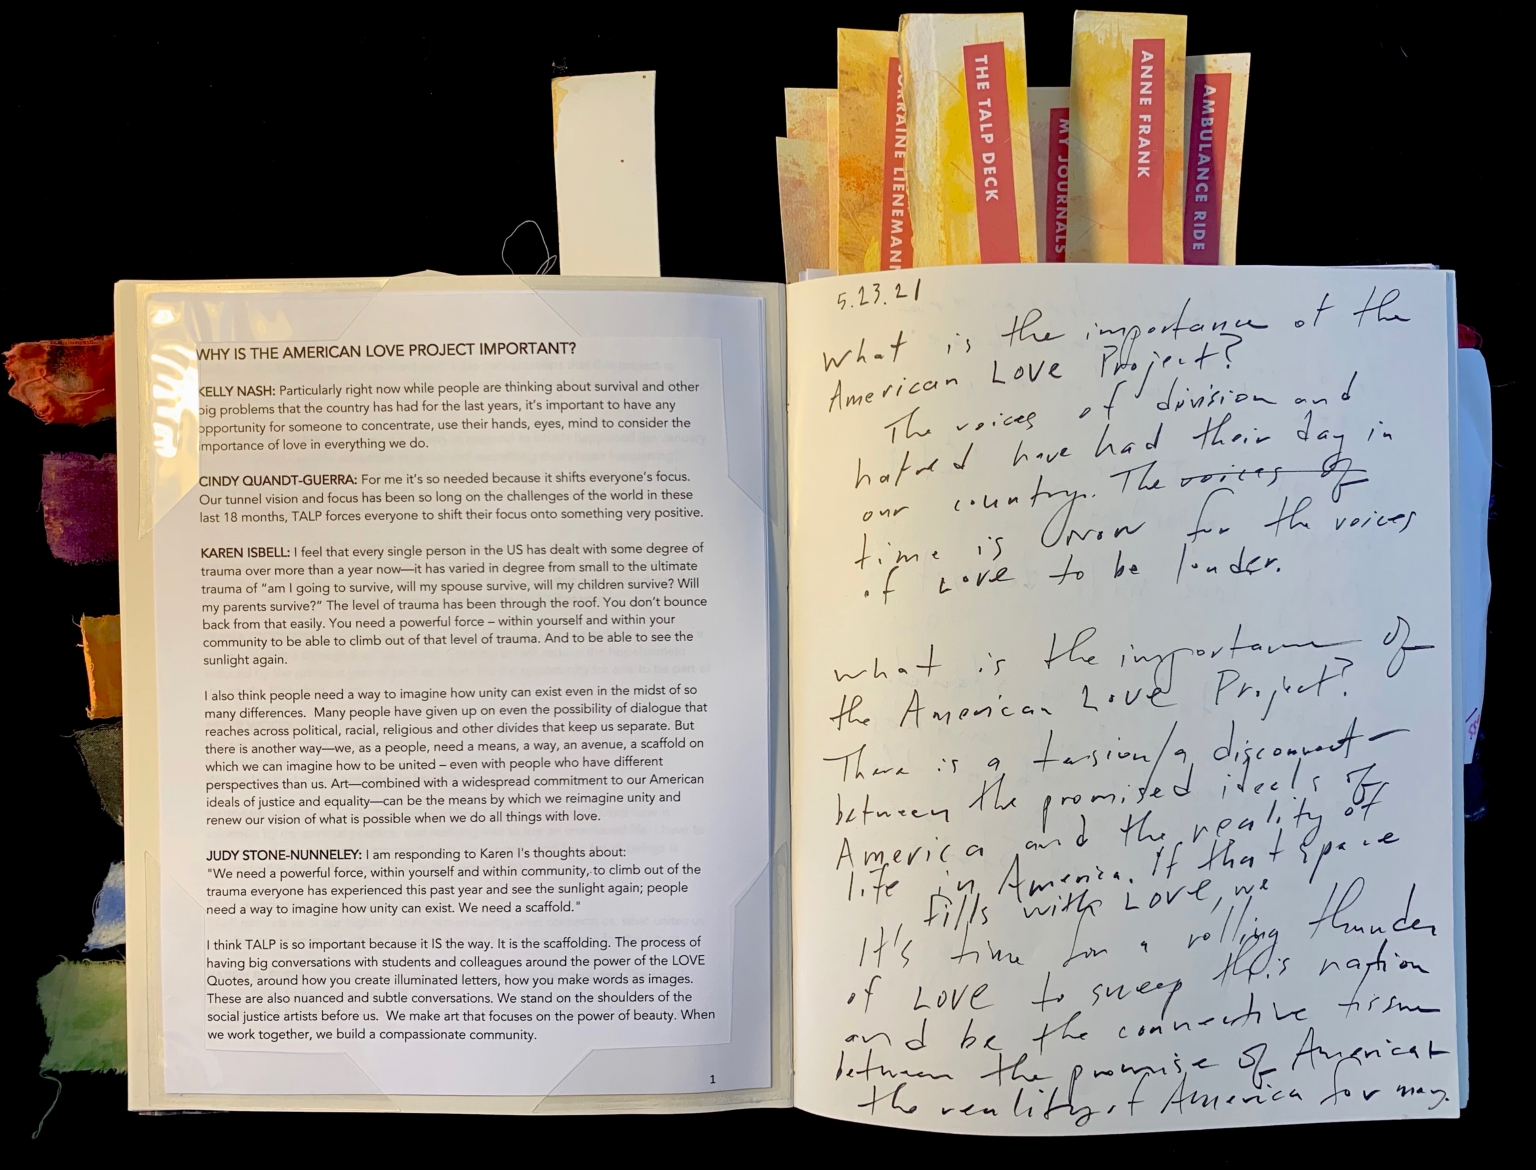 LORRAINE LIENEMANN
THE TALP DECK
MY JOURNALS
ANNE FRANK
AMBULANCE RIDE
WHY IS THE AMERICAN LOVE PROJECT IMPORTANT?
KELLY NASH: Particularly right now while people are thinking about survival and other
big problems that the country has had for the last years, it's important to have any
opportunity for someone to concentrate, use their hands, eyes, mind to consider the
importance of love in everything we do.
CINDY QUANDT-GUERRA: For me it's so needed because it shifts everyone's focus.
Our tunnel vision and focus has been so long on the challenges of the world in these
last 18 months, TALP forces everyone to shift their focus onto something very positive.
KAREN ISBELL: I feel that every single person in the US has dealt with some degree of
trauma over more than a year now—it has varied in degree from small to the ultimate
trauma of "am I going to survive, will my spouse survive, will my children survive? Will
my parents survive?" The level of trauma has been through the roof. You don't bounce
back from that easily. You need a powerful force – within yourself and within your
community to be able to climb out of that level of trauma. And to be able to see the
sunlight again.
I also think people need a way to imagine how unity can exist even in the midst of so
many differences. Many people have given up on even the possibility of dialogue that
reaches across political, racial, religious and other divides that keep us separate. But
there is another way—we, as a people, need a means, a way, an avenue, a scaffold on
which we can imagine how to be united – even with people who have different
perspectives than us. Art—combined with a widespread commitment to our American
ideals of justice and equality—can be the means by which we reimagine unity and
renew our vision of what is possible when we do all things with love.
JUDY STONE-NUNNELEY: I am responding to Karen I's thoughts about:
"We need a powerful force, within yourself and within community, to climb out of the
trauma everyone has experienced this past year and see the sunlight again; people
need a way to imagine how unity can exist. We need a scaffold."
I think TALP is so important because it IS the way. It is the scaffolding. The process of
having big conversations with students and colleagues around the power of the LOVE
Quotes, around how you create illuminated letters, how you make words as images.
These are also nuanced and subtle conversations. We stand on the shoulders of the
social justice artists before us. We make art that focuses on the power of beauty. When
we work together, we build a compassionate community.
1
5.23.21
What is the importance of the
American Love Project?
The voices of division and
hatred have had their day in
our country. The voices of
time is now for the voices
of Love to be louder.
What is the importance of
the American Love Project?
There is a tension/a disconnect –
between the promised ideals of
America and the reality of
life in America. If that space
fills with Love, we
It's time for a rolling thunder
of Love to sweep this nation
and be the connective tissue
between the promise of America &
the reality of America for many.